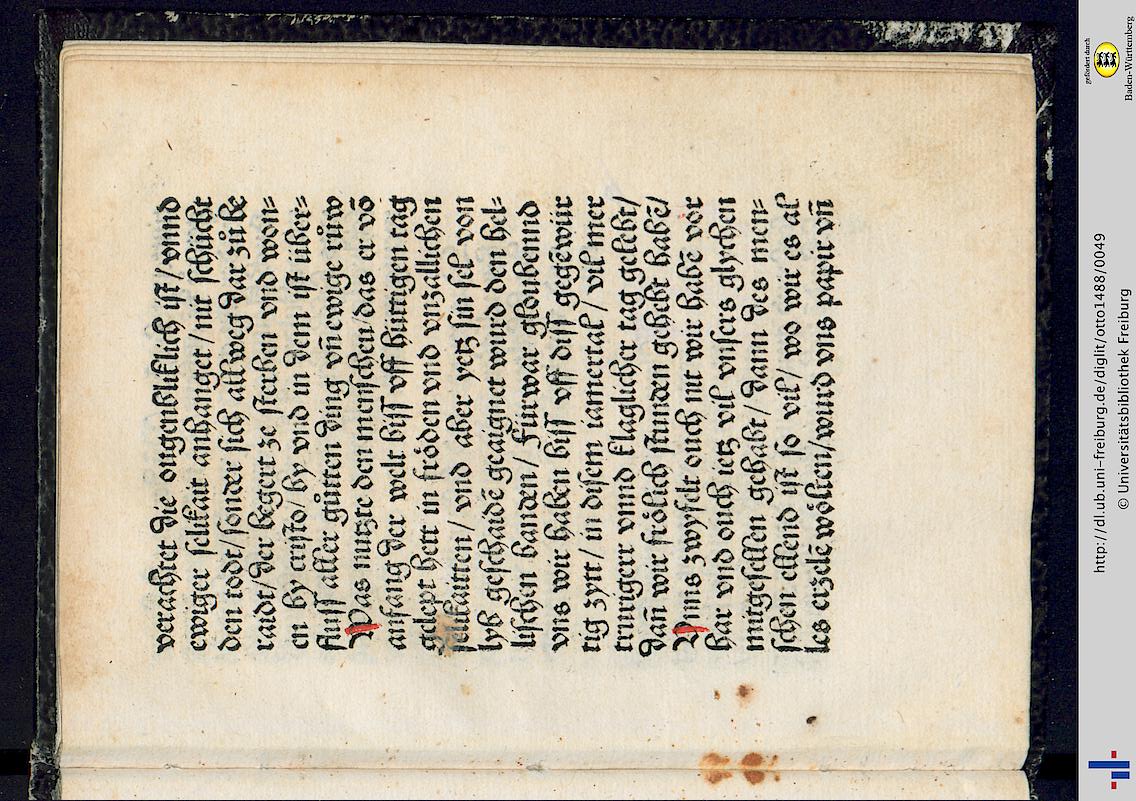 verachtet die ougenbliklich ist / vnnd
ewiger selikait anhanget / nit schücht
den todt / sonder sich allweg dar zů be
raidt / der begert ze sterben vnd won=
en by cristo / by vnd in dem ist über=
fluſſ aller gůtten ding vñ ewige růw
Was nutzte den menschen / das er vō
anfang der welt biſſ vff hüttigen tag
gelept hett in fröden vnd vnzallichen
selikaitten / vnd aber yetz sin sel von
lyb geschaidē geaignet wurd den hel=
lischen banden / Fürwar gloubennd
vns wir haben biſſ vff diſſ gegēwür
tig zytt / in disem iamertal / vil mer
truriger vnnd klaglicher tag gelebt /
dañ wir frölich stunden gehebt habē /
Vnns zwyfelt ouch nit wir habē vor
har vnd ouch ietz vil vnsers glychen
mitgesellen gehabt / dann des men=
schen ellend ist so vil / wo wir es al
les erzelē wölten / wurd vns papir vñ
gefördert durch
Baden-Württemberg
http://dl.ub.uni-freiburg.de/diglit/otto1488/0049
© Universitätsbibliothek Freiburg